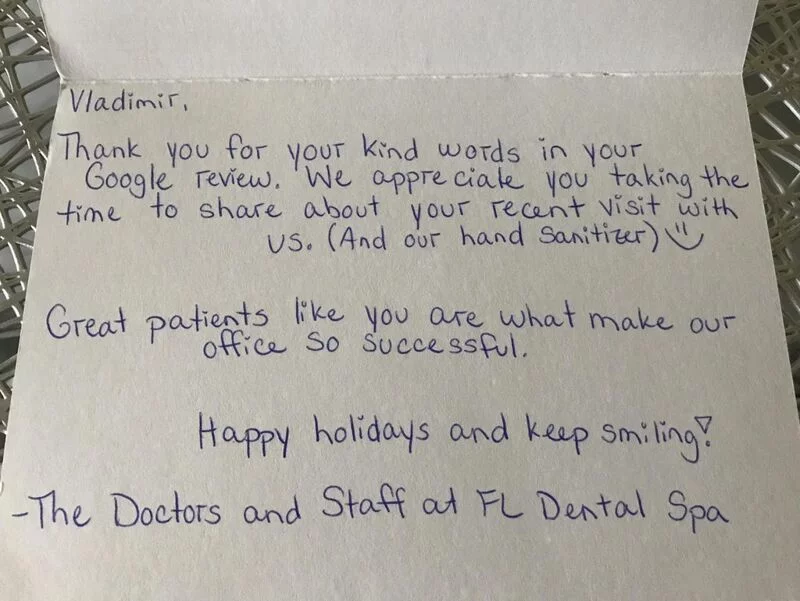 Vladimir,
Thank you for your kind words in your
Google review. We appreciate you taking the
time to share about your recent visit with
us. (And our hand sanitizer)
Great patients like you are what make our
office so successful.
Happy holidays and keep smiling!
-The Doctors and Staff at FL Dental Spa